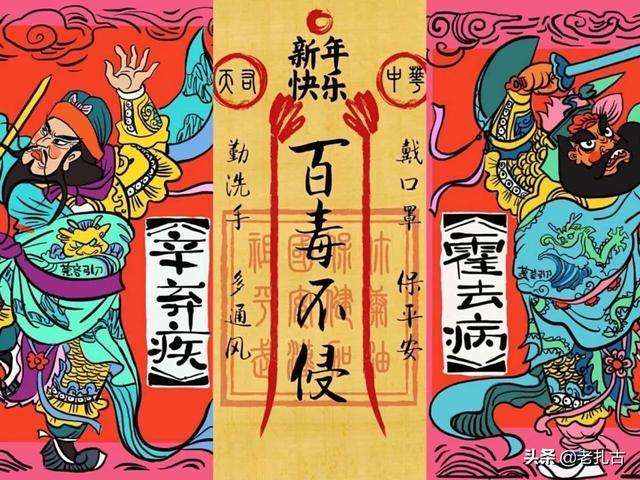 新年
快乐
中華
百毒不侵
勤洗手 多通风
戴口罩 保平安
【辛弃疾】
【霍去病】
头条 @老扎古